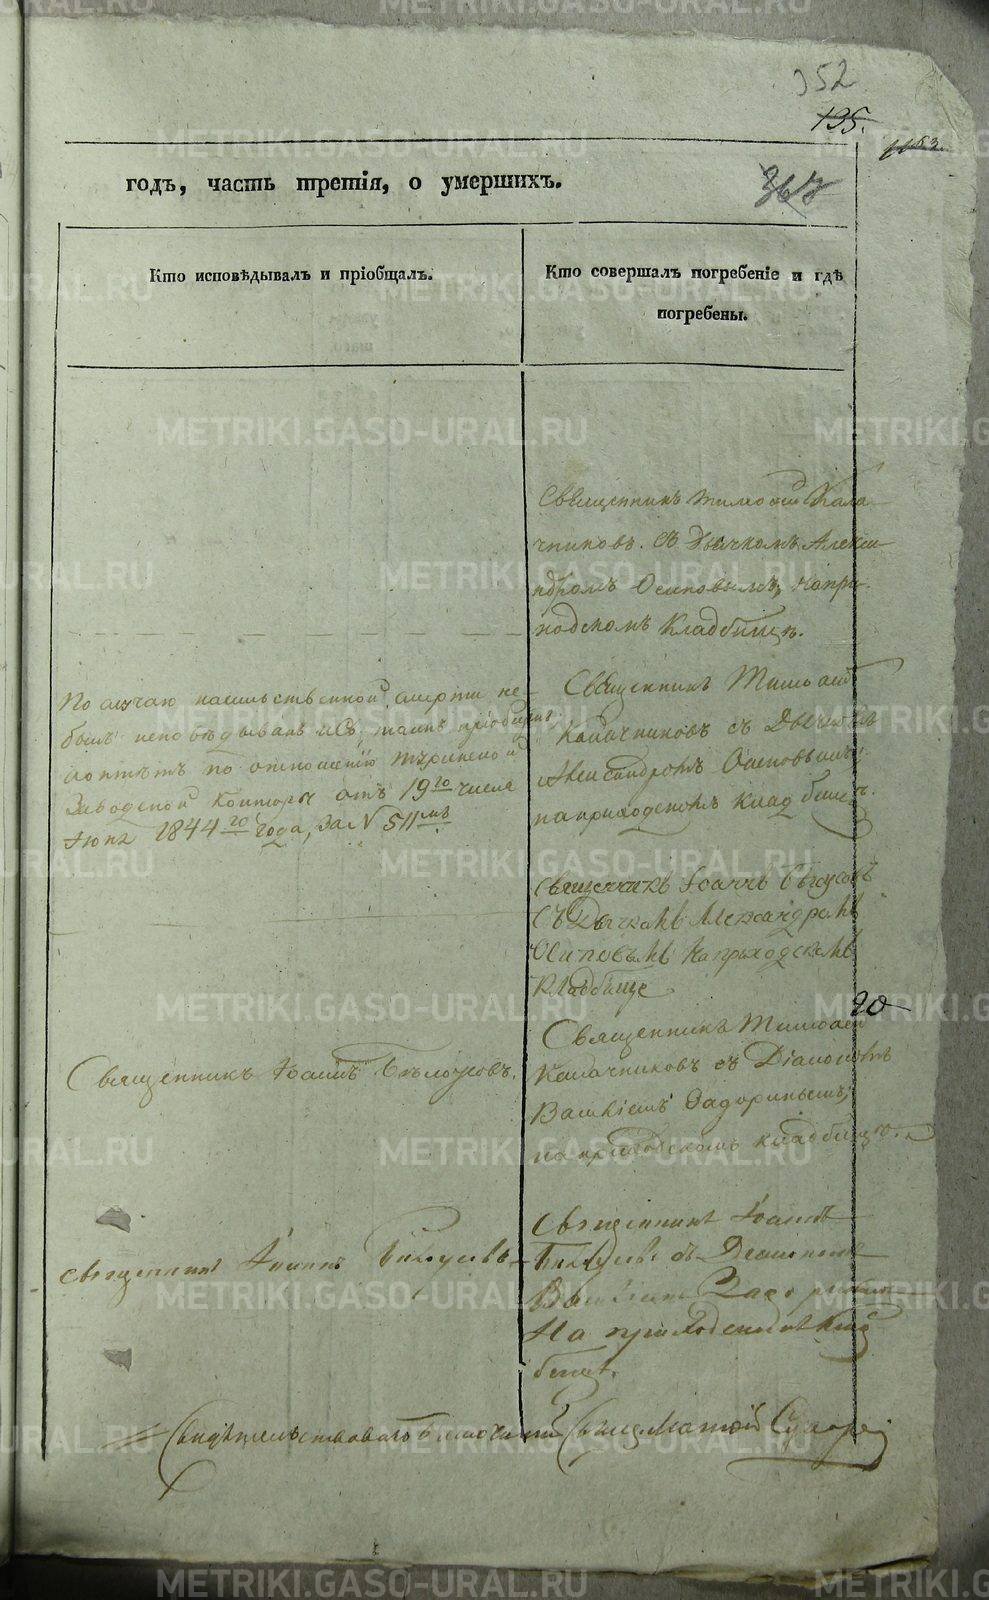 352
135.
1183.
367
годъ, часть третія, о умершихъ.
Кто исповѣдывалъ и пріобщалъ.
Кто совершалъ погребеніе и гдѣ
погребены.
Священникъ Тимоѳей Кала
чниковъ. съ Дьячкомъ Алекса
ндромъ Осиповымъ, на при
ходскомъ Кладбищѣ.
По случаю насильственной смерти не
былъ исповѣдыванъ и Св. таинъ пріобщенъ
по отношенію Туринской
Заводской Конторы отъ 19го числа
Іюня 1844го года, за N 511мъ
Священникъ Тимоѳей
Калачниковъ съ Дьячкомъ
Александромъ Осиповымъ
на приходскомъ кладбищѣ.
Священникъ Іоаннъ Бѣлоусовъ
съ Дьячкомъ Александромъ
Осиповымъ На приходскомъ
Кладбище
20
Священникъ Іоаннъ Бѣлоусовъ.
Священникъ Тимоѳей
Калачниковъ съ Діакономъ
Васи­ліемъ Задоринымъ,
на приходскомъ кладбищѣ.
священникъ Іоаннъ Белоусовъ
священникъ Іоаннъ
Белоусовъ съ Діакономъ
Василіемъ Задоринымъ
На приходскомъ Клад
бищѣ.
Свидѣтельствовалъ Благочинный Свящ. Матѳій Сухорев
METRIKI.GASO-URAL.RU